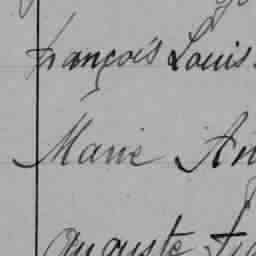 françois Louis
Marie An
auguste